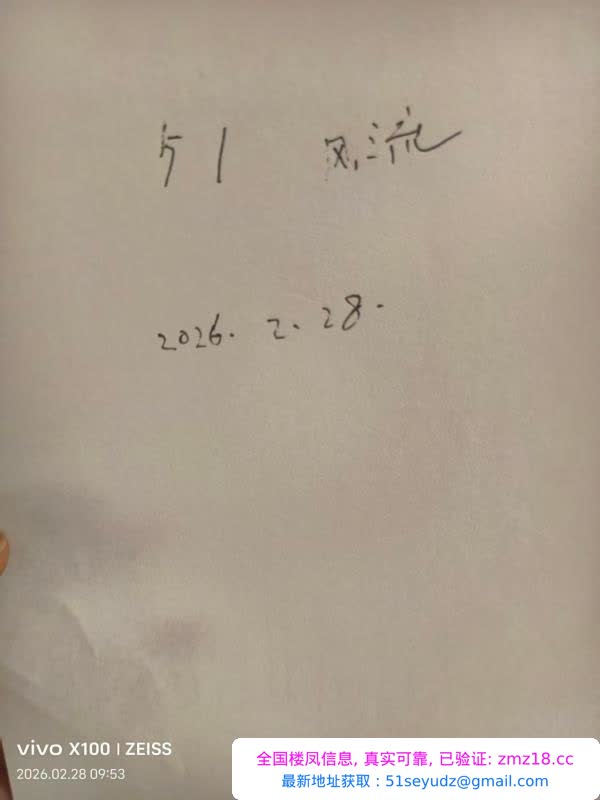 51 风流
2026. 2. 28.
vivo X100 | ZEISS
2026.02.28 09:53
全国楼凤信息, 真实可靠, 已验证: zmz18.cc
最新地址获取：51seyudz@gmail.com